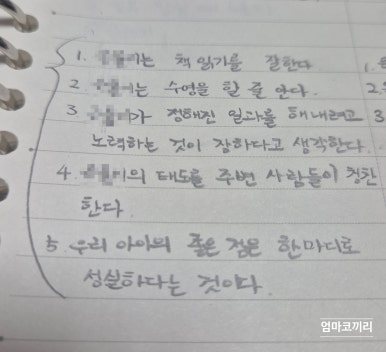 1. 이는 책 읽기를 잘한다
2. 이는 수영을 할 줄 안다.
3 가 정해진 일과를 해내려고
노력하는 것이 장하다고 생각한다.
4 이의 태도를 주변 사람들이 칭찬
한다.
5 우리 아이의 좋은 점은 한마디로
성실하다는 것이다.
1.
2.
3
엄마코끼리